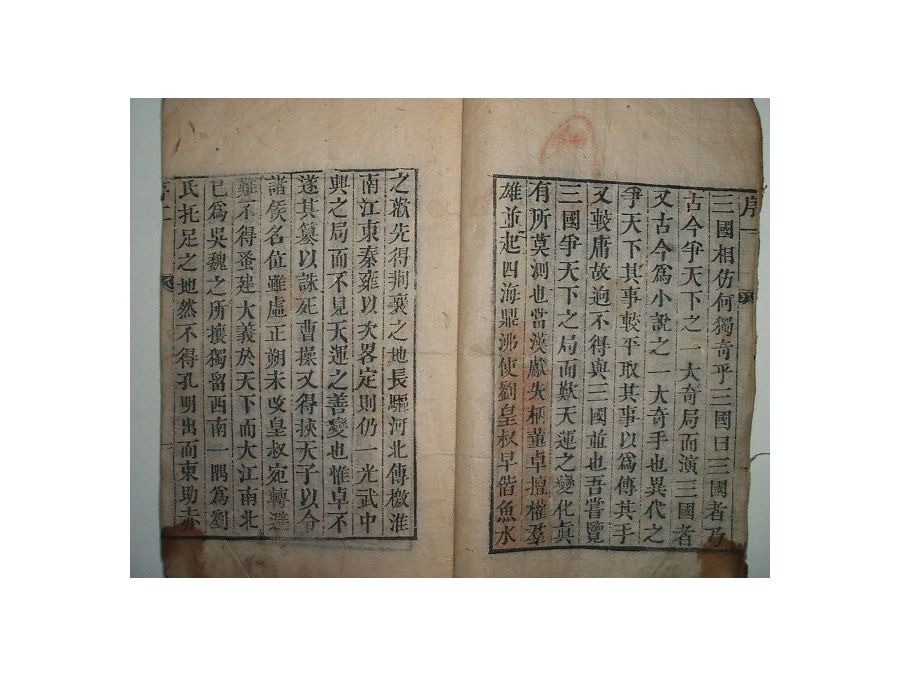 序一
三國相仿何獨奇乎三國曰三國者乃
古今爭天下之一大奇局而演三國者
又古今爲小說之一大奇手也異代之
爭天下其事較平取其事以爲傳其手
又較庸故迥不得與三國並也吾嘗覽
三國爭天下之局而歎天運之變化眞
有所莫測也當漢獻失柄董卓擅權羣
雄並起四海鼎沸使劉皇叔早偕魚水
之歡先得荆襄之地長驅河北傳檄淮
南江東秦雍以次畧定則仍一光武中
興之局而不見天運之善變也惟卓不
遂其篡以誅死曹操又得挾天子以令
諸侯名位雖虛正朔未改皇叔宛轉避
難不得蚤建大義於天下而大江南北
已爲吳魏之所攘獨留西南一隅爲劉
氏托足之地然不得孔明出而東助赤
序二